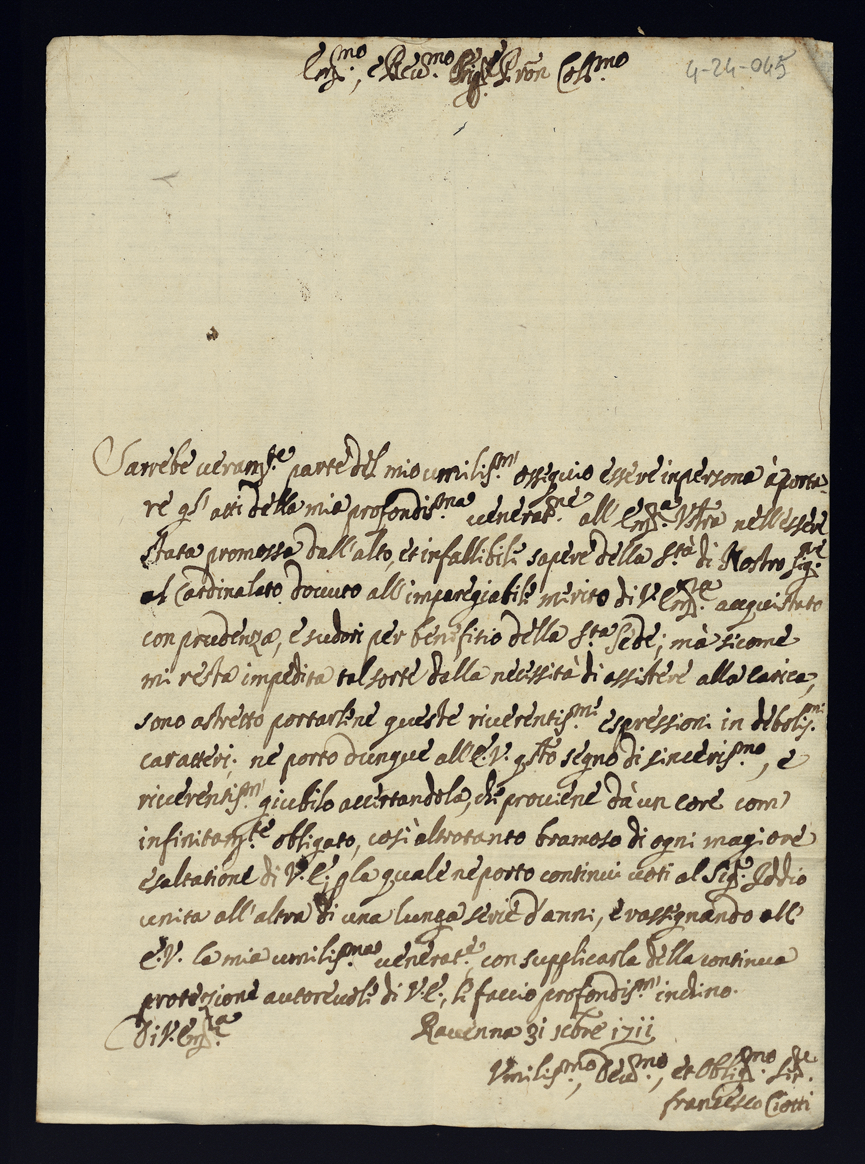 Em.mo, e Reu.mo Sig.re Pron Coll.mo
4-24-045
Sarrebe ueram.te parte del mio umilis.mo osseguio essere in persona à porta-
re gl'atti della mia profondis.ma uenerat.ne all'Em.a Vstra nell'essere
stata promossa dall'alto, et infallibile sapere della S.tà di Nostro Sig.re
al Cardinalato douuto all'imparegiabile merito di V. Em.za acquistato
con prudenza, e sudori per benefitio della S.ta Sede; mà sicome
mi resta impedita tal sorte dalla necessità di assistere alla carica,
sono astretto portarlene queste riuerentis.me espressioni in debolis.mi
caratteri; ne porto dunque all'E.V. gsto segno di sinceris.mo, e
riuerentis.mo giubilo accertandola, che prouiene dà un core com'
infinitam.te obligato, così altrotanto bramoso di ogni magiore
esaltatione di V.E; p la quale ne porto continui uoti al Sig.r Iddio
unita all'altra di una lunga serie d'anni, e rassegnando all'
E.V. la mia umilis.ma uenerat.e, con supplicarla della continua
protezione autoreuole di V.E., le faccio profondis.mo inchino.
Di V. Em.za
Rauenna 31 8bre 1711
Umilis.mo, Deu.mo, et Oblig.mo Ser.e
Francesco Ciotti